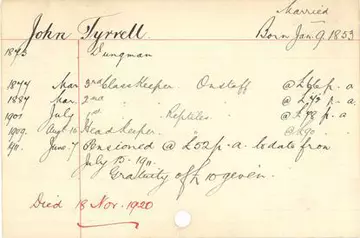 Married
John Tyrrell. Born Jan. 9. 1853
1873 Dungman
1877 Mar. 3rd Class Keeper. On staff @ £66 p. a
1887 Mar. 2nd " " @ £75 p. a.
1901 July 1st " Reptiles @ £78 p. a
1909. Aug 16 Headkeeper. " @ £90. "
1911. June 7 Pensioned @ £52 p. a. to date from
July 15. 1911.
Gratuity of £10 given.
Died 18 Nov. 1920